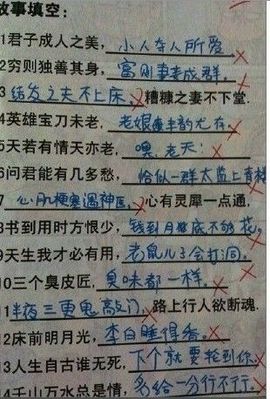 故事填空：
1君子成人之美，小人夺人所爱
2穷则独善其身，富则妻妾成群。
3结发之夫不上床，糟糠之妻不下堂.
4英雄宝刀未老，老娘丰韵尤存
5天若有情天亦老，噢，老天！
6问君能有几多愁，恰似一群太监上青楼
7心肌梗塞遇神医。心有灵犀一点通，
8书到用时方恨少，钱到月底不够花，
9天生我才必有用，老鼠儿子会打洞。
10三个臭皮匠，臭味都一样。
11半夜三更鬼敲门，路上行人欲断魂.
12床前明月光，李白睡得香。
13人生自古谁无死，下个就要轮到你
14千山万水总是情，多给一分行不行。